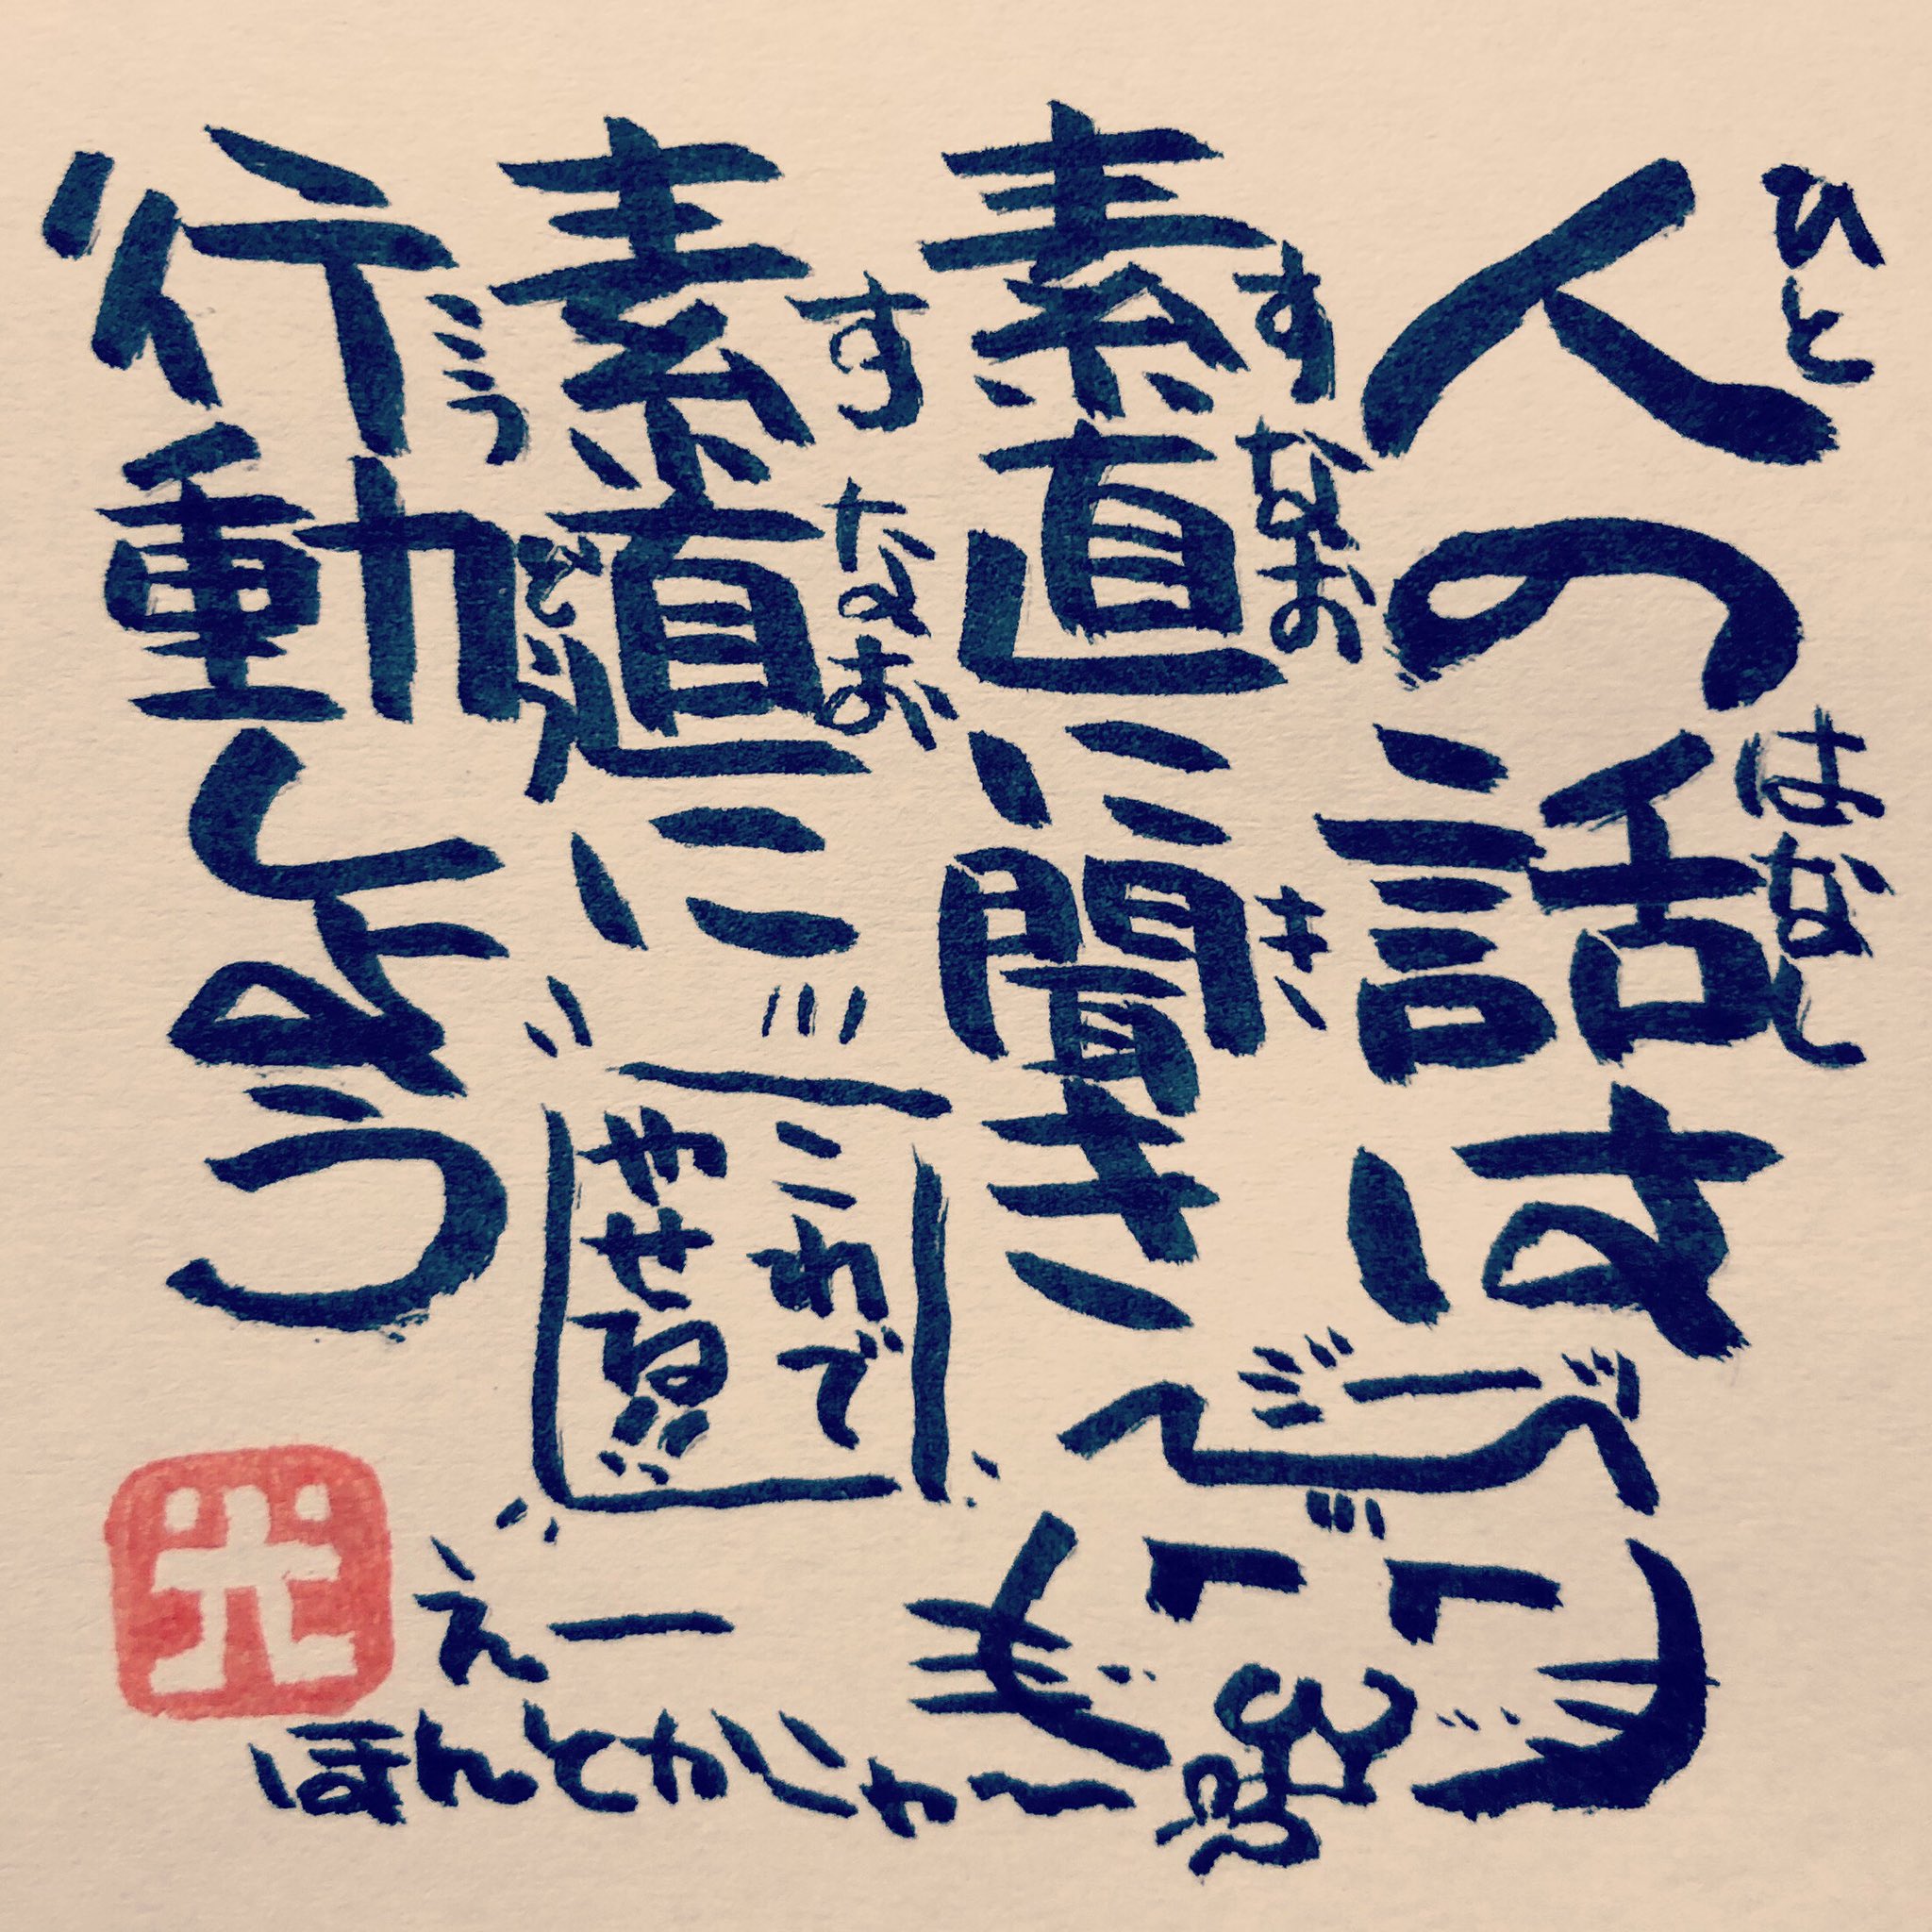 人の話は
素直に聞き
素直に
行動しよう
ひと
はなし
すなお
き
すなお
こうどう
これで
やせる!!
えー
ほんとかじゃ〜
光